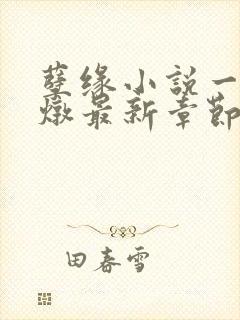 孽缘小说一
燉最新章節
田春雪